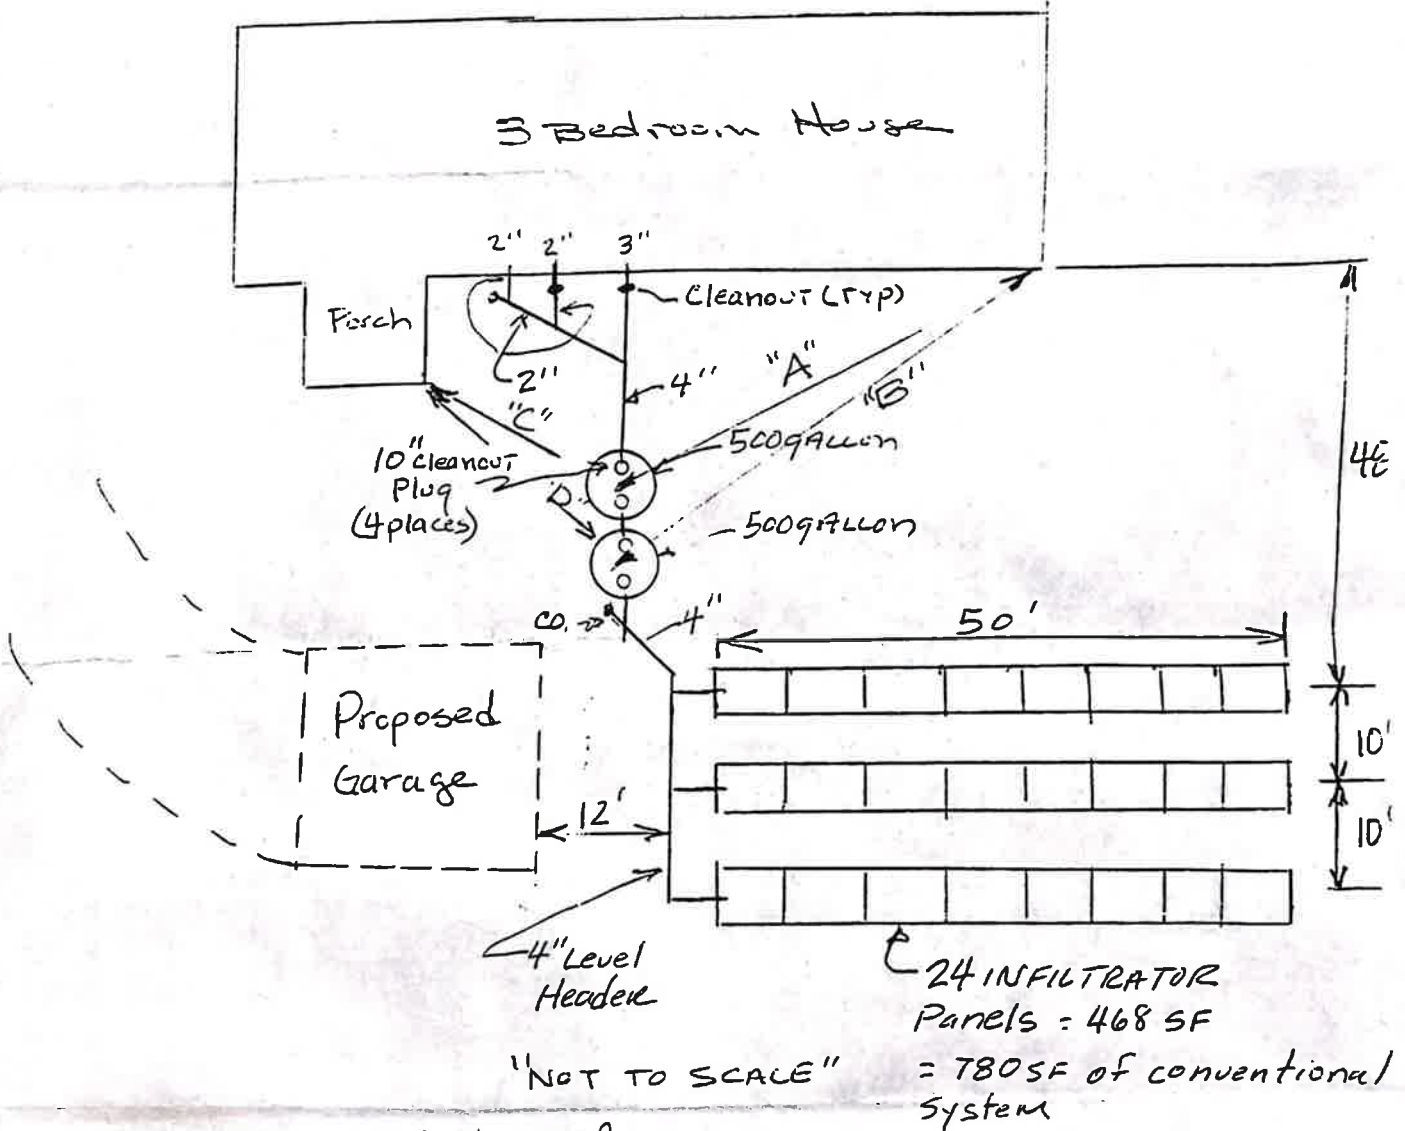 3 Bedroom House
2" 2" 3"
Cleanout (Typ)
Porch
2"
4"
"A"
"B"
"C"
500 gallon
10" Cleanout
Plug
(4 places)
D.
500 gallon
CO.
4"
50'
Proposed
Garage
12'
10'
10'
4" Level
Header
24 INFILTRATOR
Panels = 468 SF
= 780 SF of conventional
System
"NOT TO SCALE"